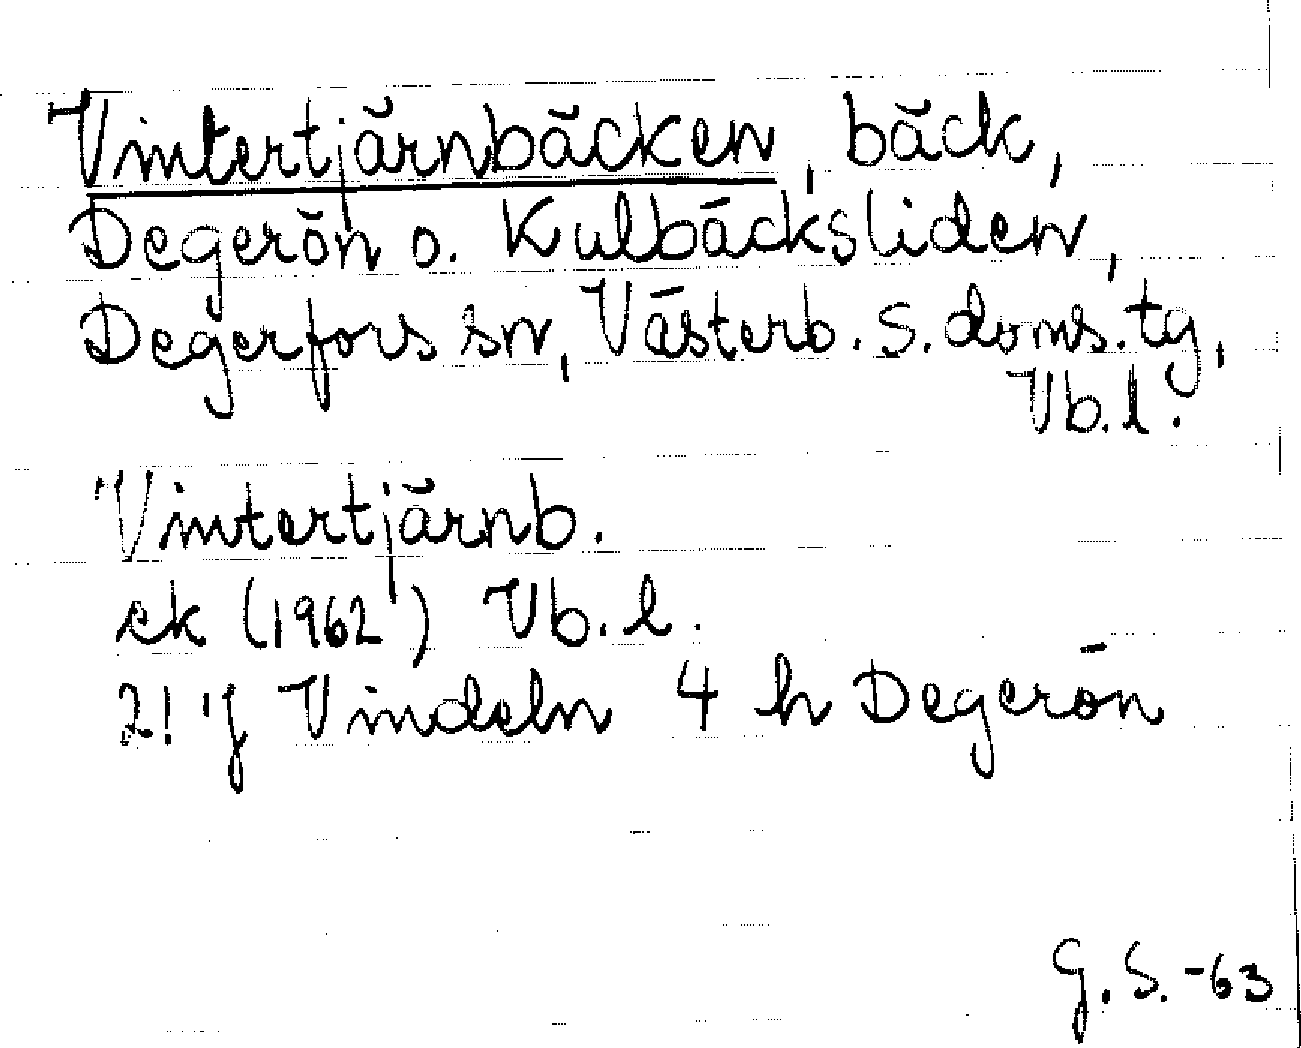 Vintertjärnbäcken, bäck,
Degerön o. Kulbäcksliden,
Degerfors sn, Västerb. s. doms. tg,
Vb. l.
Vintertjärnb.
ek (1962) Vb. l.
21 ij Vindeln 4 h Degerön
G. S. -63